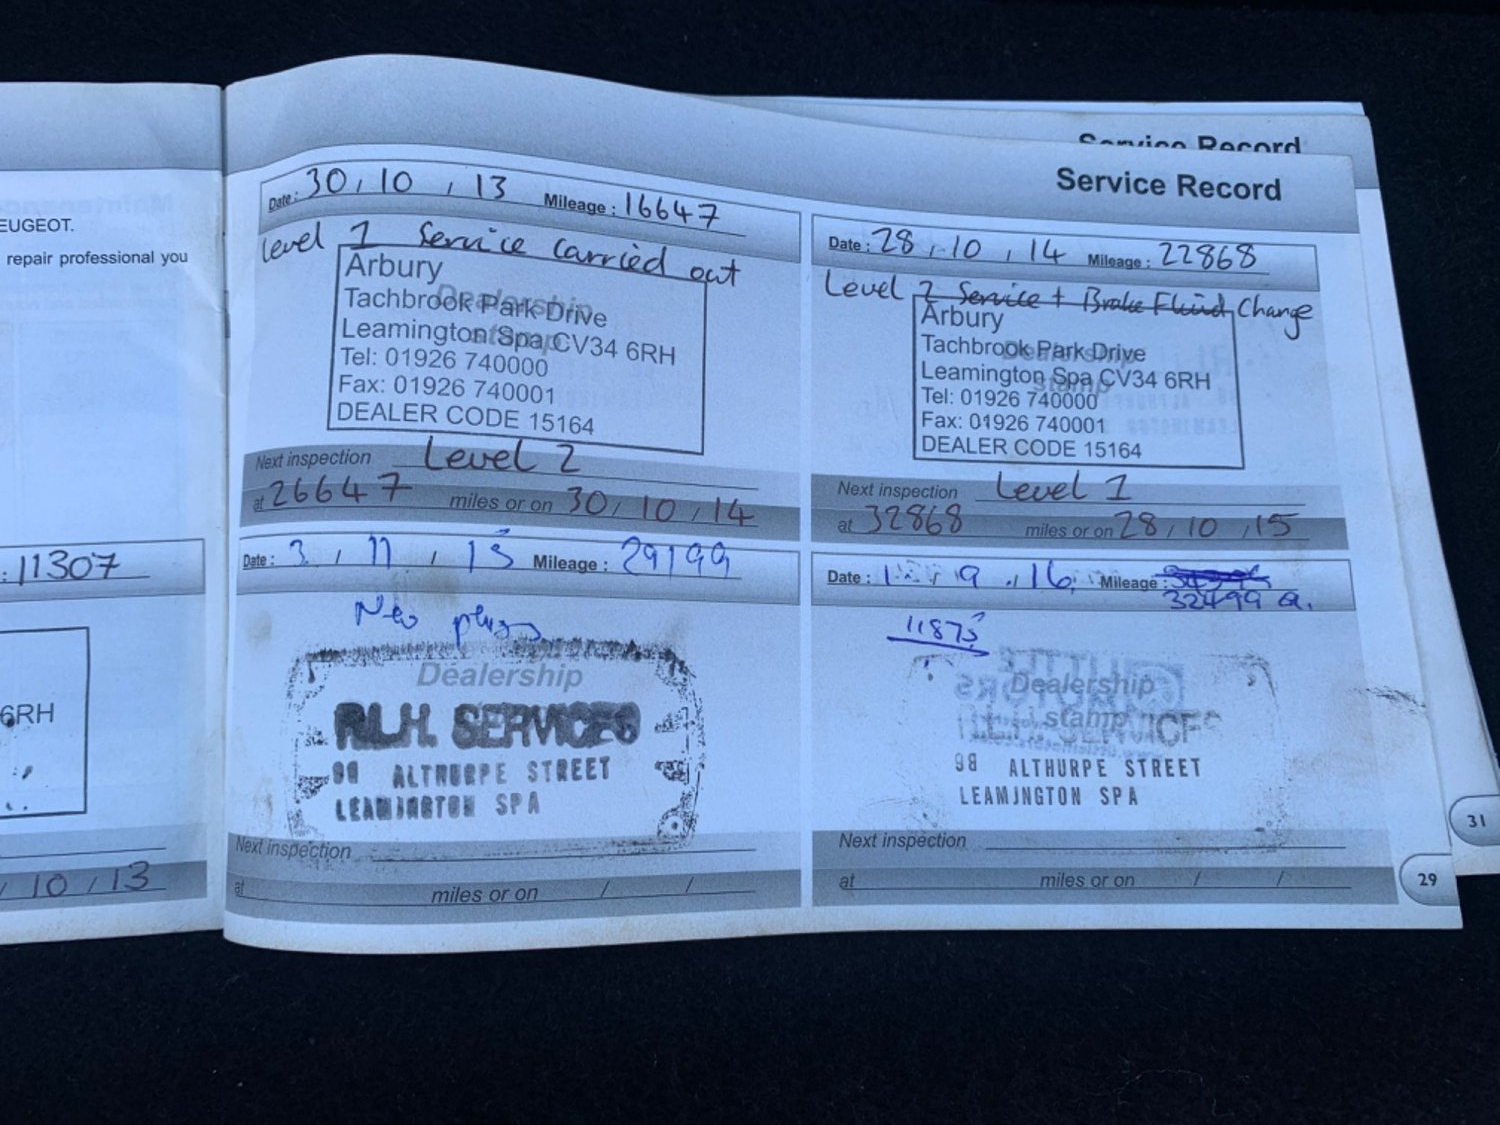 EUGEOT.
repair professional you
: 11307
6RH
/ 10 / 13
Service Record
Service Record
Date : 30 / 10 / 13 Mileage : 16647
Level 1 Service carried out
Dealership
stamp
Arbury
Tachbrook Park Drive
Leamington Spa CV34 6RH
Tel: 01926 740000
Fax: 01926 740001
DEALER CODE 15164
Next inspection Level 2
at 26647 miles or on 30 / 10 / 14
Date : 28 / 10 / 14 Mileage : 22868
Level 2 Service + Brake Fluid Change
Dealership
stamp
Arbury
Tachbrook Park Drive
Leamington Spa CV34 6RH
Tel: 01926 740000
Fax: 01926 740001
DEALER CODE 15164
Next inspection Level 1
at 32868 miles or on 28 / 10 / 15
Date : 3 / 11 / 15 Mileage : 29199
New plugs
Dealership
R.L.H. SERVICES
98 ALTHURPE STREET
LEAMINGTON SPA
Next inspection
at miles or on / /
Date : 9 / 16 Mileage :
32499
11875
Dealership
stamp
98 ALTHURPE STREET
LEAMINGTON SPA
Next inspection
at miles or on / /
29
31